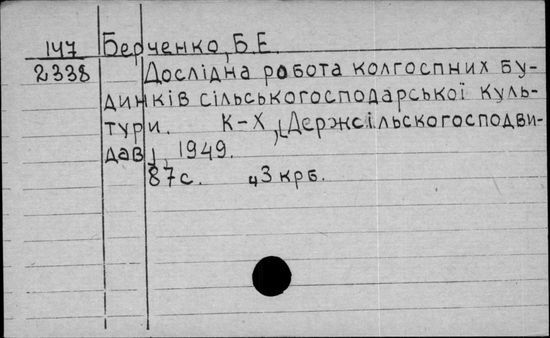 147 Берченко, Б.Е.
2338 Дослідна робота колгоспних бу-
динків сільськогосподарської куль-
тури. К-Х, [Держсільскогосподви-
дав], 1949.
87с. ч3 крб.